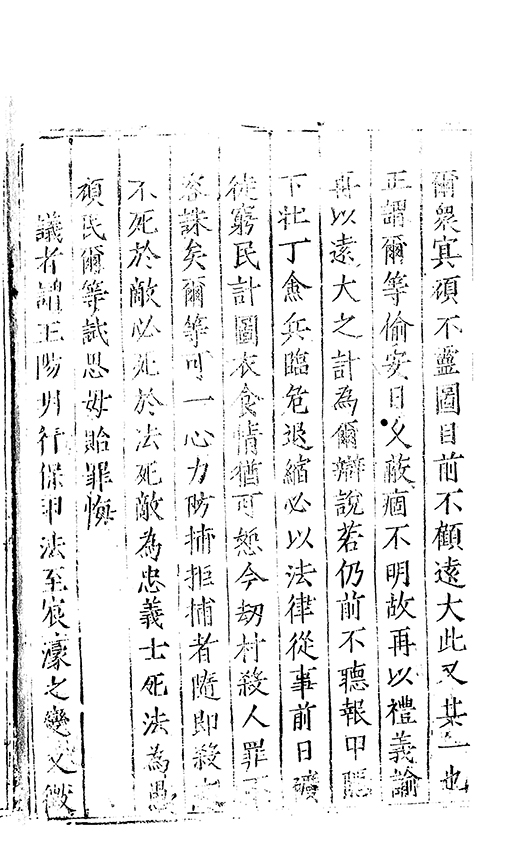 爾衆寅頑不靈圖目前不顧遠大此又其一也
正謂爾等偷安日久蔽痼不明故再以禮義諭
再以遠大之計為爾辯說若仍前不聽報甲隱
下壯丁僉兵臨危退縮必以法律從事前日礦
徒窮民計圖衣食情猶可恕今刼村殺人罪不
容誅矣爾等可一心力防捕拒捕者隨即殺之
不死於敵必死於法死敵為忠義士死法為愚
頑民爾等試思毋貽罪悔
議者謂王陽明行保甲法至宸濠之變又徵